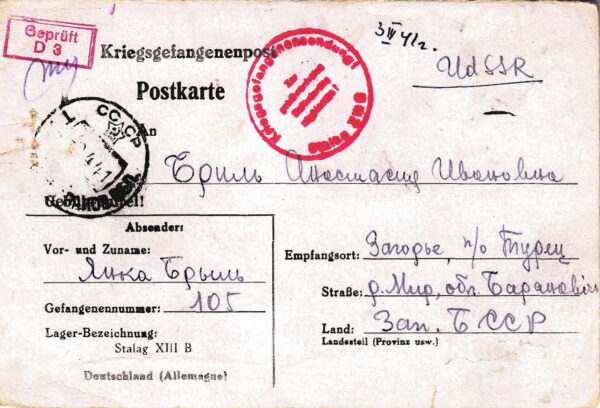 Geprüft
D 3
3 VI 41г.
UdSSR
Kriegsgefangenenpost
Postkarte
Kriegsgefangenensendung!
СССР
An
Бриль Анастасия Ивановна
Gebührenfrei!
Absender:
Vor- und Zuname:
Янка Брыль
Gefangenennummer: 105
Lager-Bezeichnung:
Stalag XIII B
Deutschland (Allemagne)
Empfangsort: Загорье, п/о Турец
Straße: д. Мир, обл. Баранович
Land: Зап. БССР
Landesteil (Provinz usw.)